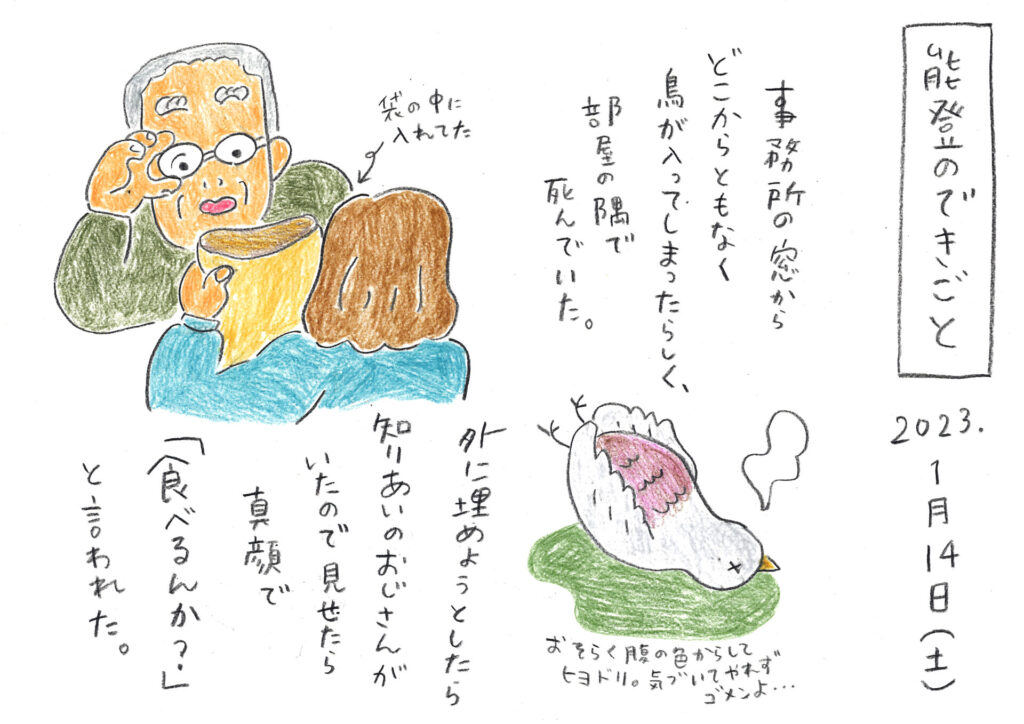 能登のできごと
2023.1月14日(土)
事務所の窓から
どこからともなく
鳥が入ってしまったらしく、
部屋の隅で
死んでいた。
袋の中に
入れてた
おそらく腹の色からして
ヒヨドリ。気づいてやれず
ゴメンよ…
外に埋めようとしたら
知りあいのおじさんが
いたので見せたら
真顔で
「食べるんか?」
と言われた。